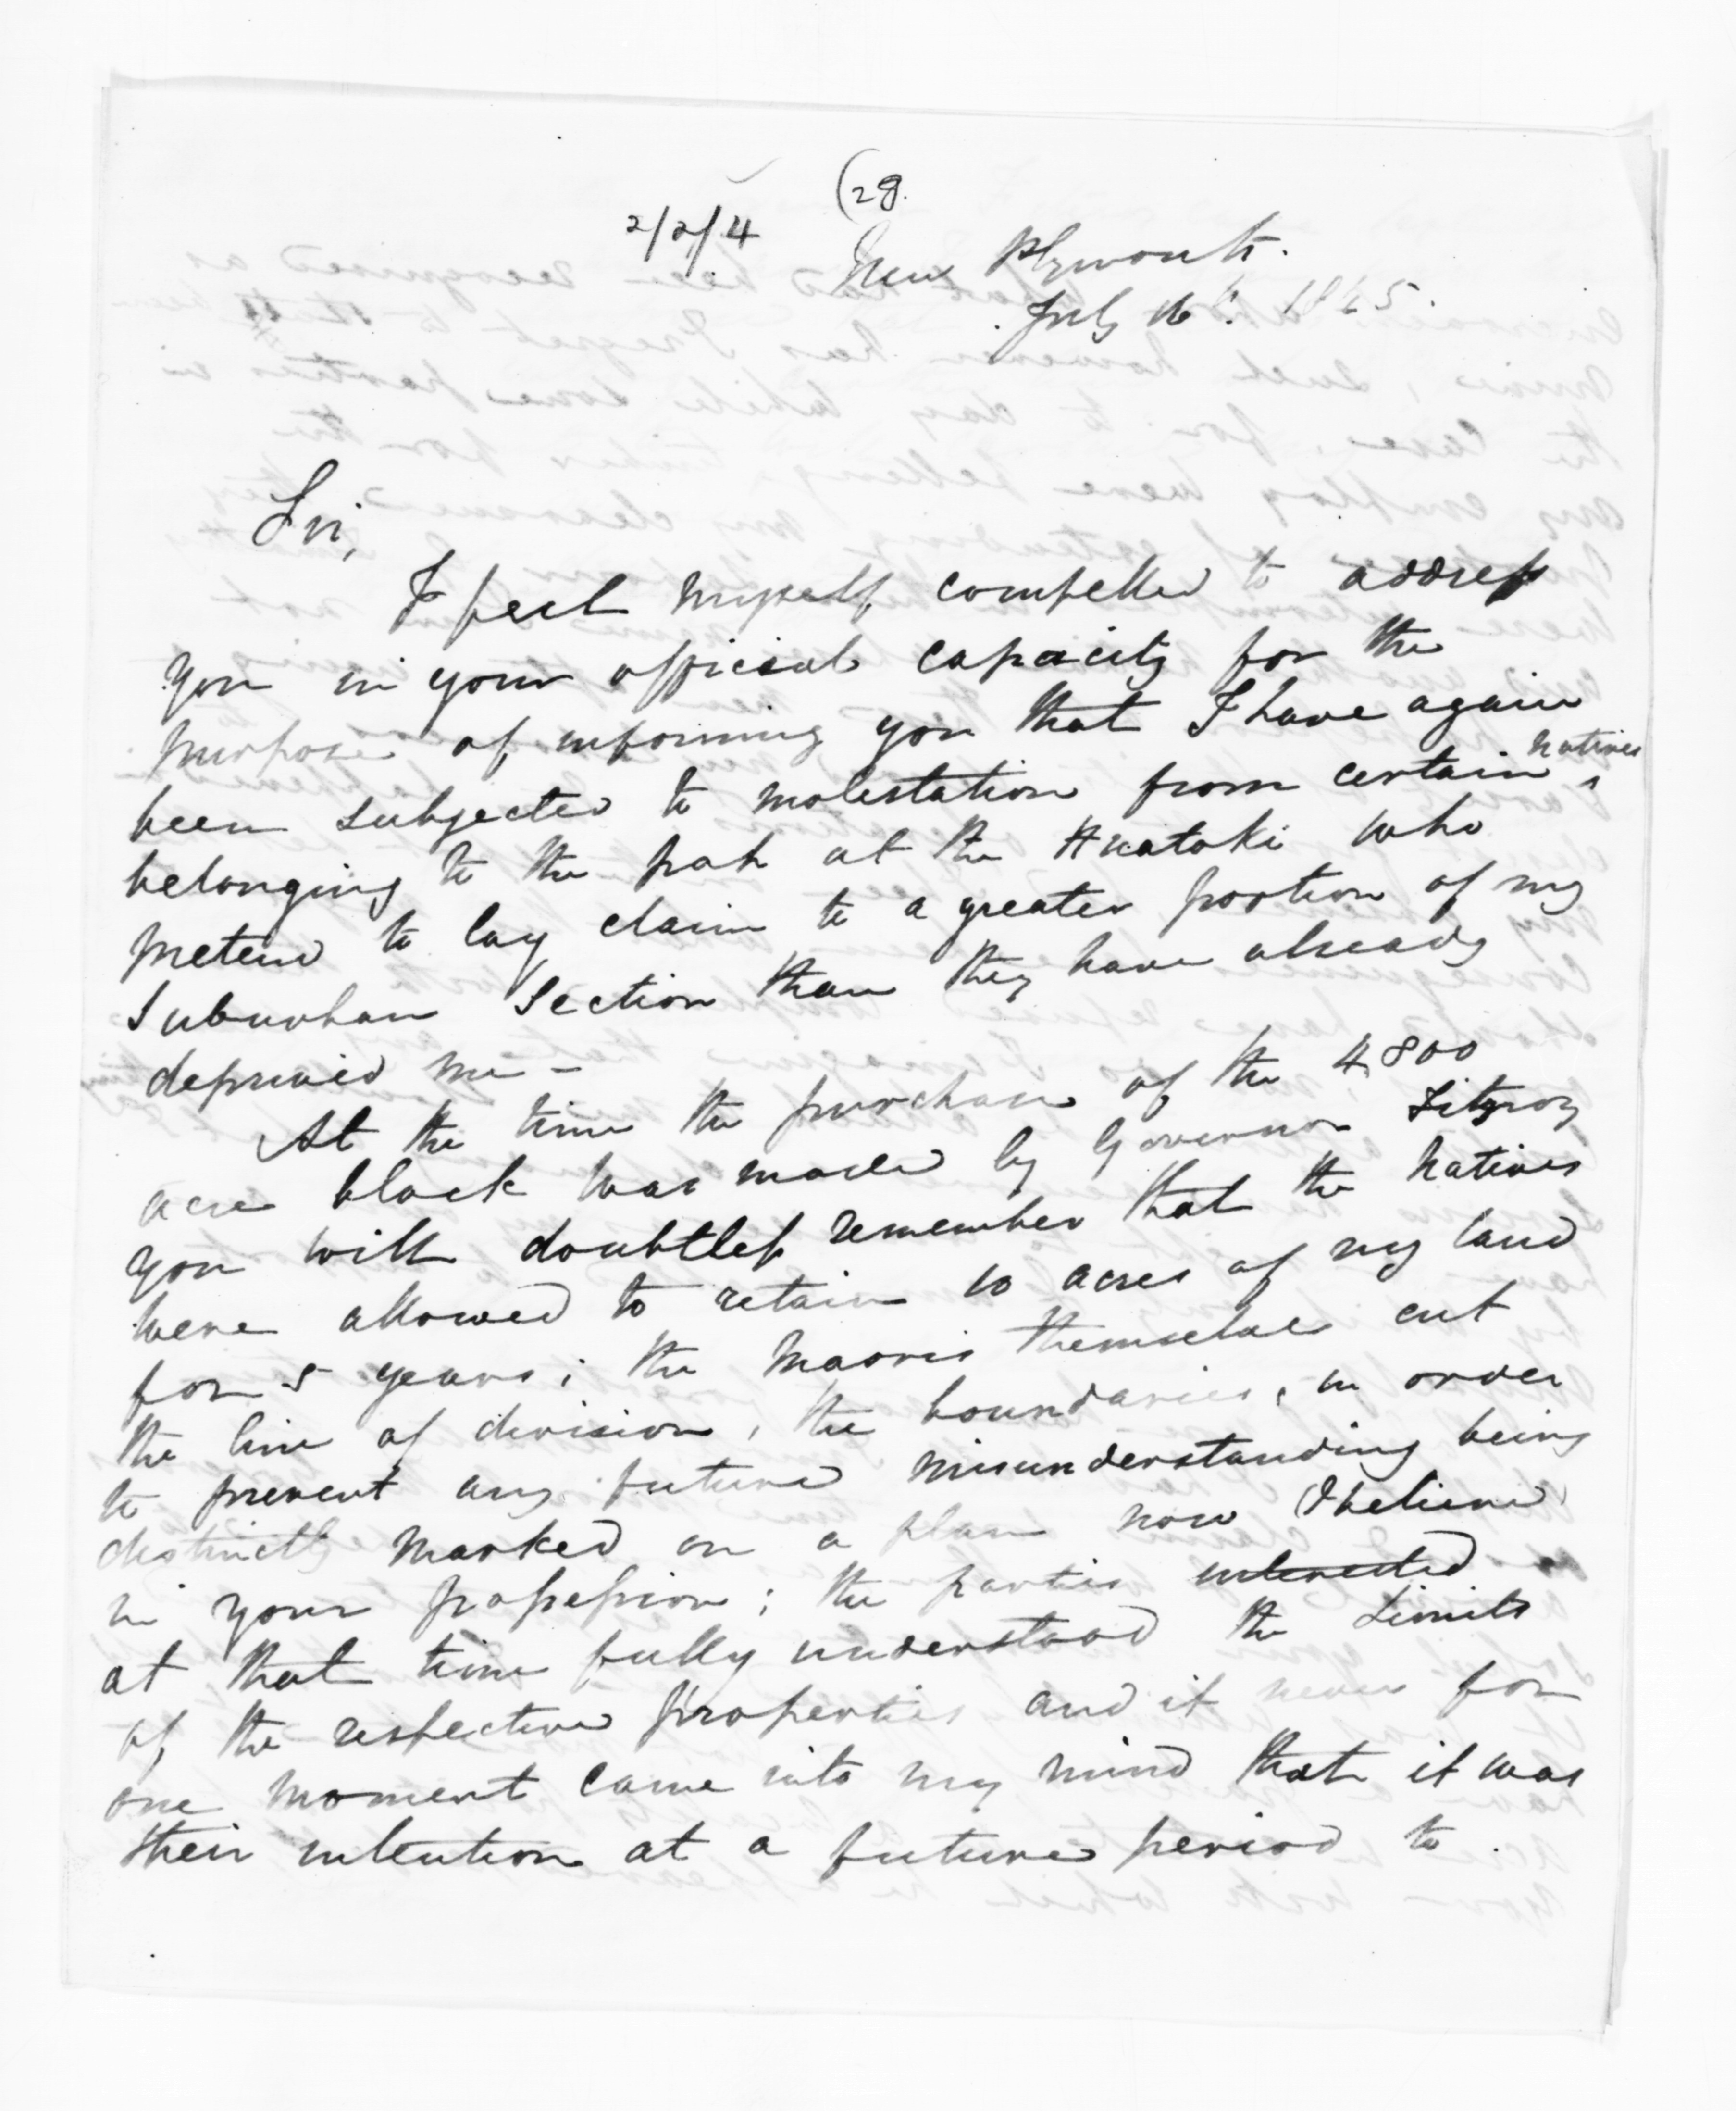 (28.
2/2/4
New Plymouth.
July 16th. 1845.
Sir,
I feel myself compelled to address
you in your official capacity for the
purpose of informing you that I have again
been subjected to molestation from certain natives
belonging to the pah at the Huatoki who
pretend to lay claim to a greater portion of my
Suburban Section than they have already
deprived me -
At the time the purchase of the 4800
acre block was made by Governor Fitzroy
you will doubtless remember that the Natives
were allowed to retain 10 acres of my land
for 5 years; the Maoris themselves cut
the line of division, the boundaries, in order
to prevent any future misunderstanding being
distinctly marked on a plan now (I believe)
in your possession; the parties interested
at that time fully understood the limits
of the respective properties and it never for
one moment came into my mind that it was
their intention at a future period to